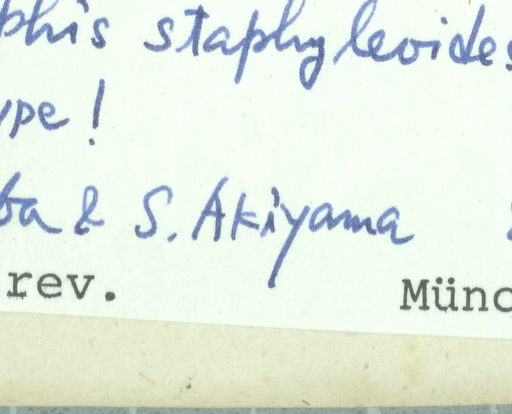 phis staphyleoides
ype!
ba & S. Akiyama
rev. Münc